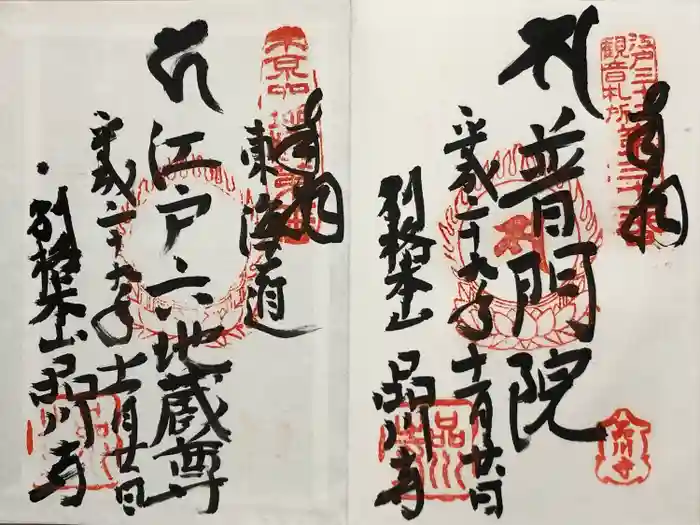 奉拝
江戸三十三観音札所第三十一番
普門院
平成二十九年十一月廿日
別格本山 品川寺
奉拝
東海道
江戸六地蔵尊
平成二十九年十一月廿日
別格本山 品川寺